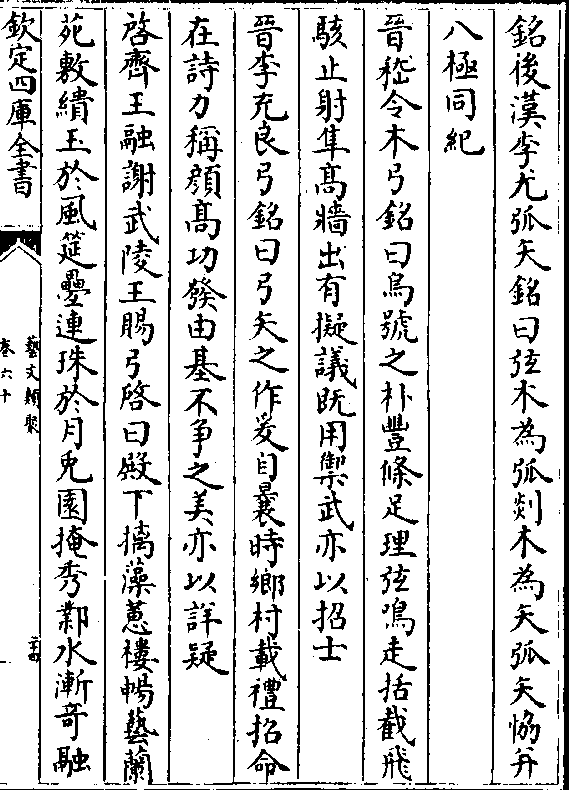 銘後漢李尤弧矢銘曰弦木為弧剡木為矢弧矢恊并
八極同紀
晉嵇令木弓銘曰烏號之朴豐條足理弦鳴走括截飛
駭止射隼髙牆出有擬議既用禦武亦以招士
晉李充良弓銘曰弓矢之作爰自曩時鄉村載禮招命
在詩力稱顔髙功發由基不争之美亦以詳疑
啓齊王融謝武陵王賜弓啓曰殿下摛藻蕙樓暢藝蘭
苑敷繢玉於風筵疊連珠於月兎園掩秀鄴水漸竒融
欽定四庫全書
藝文類聚
卷六十